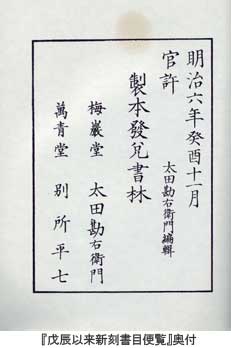 明治六年癸酉十一月
官許
太田勘右衛門編輯
製本發兌書林
梅巖堂 太田勘右衛門
萬青堂 別所平七
『戊辰以来新刻書目便覧』奥付